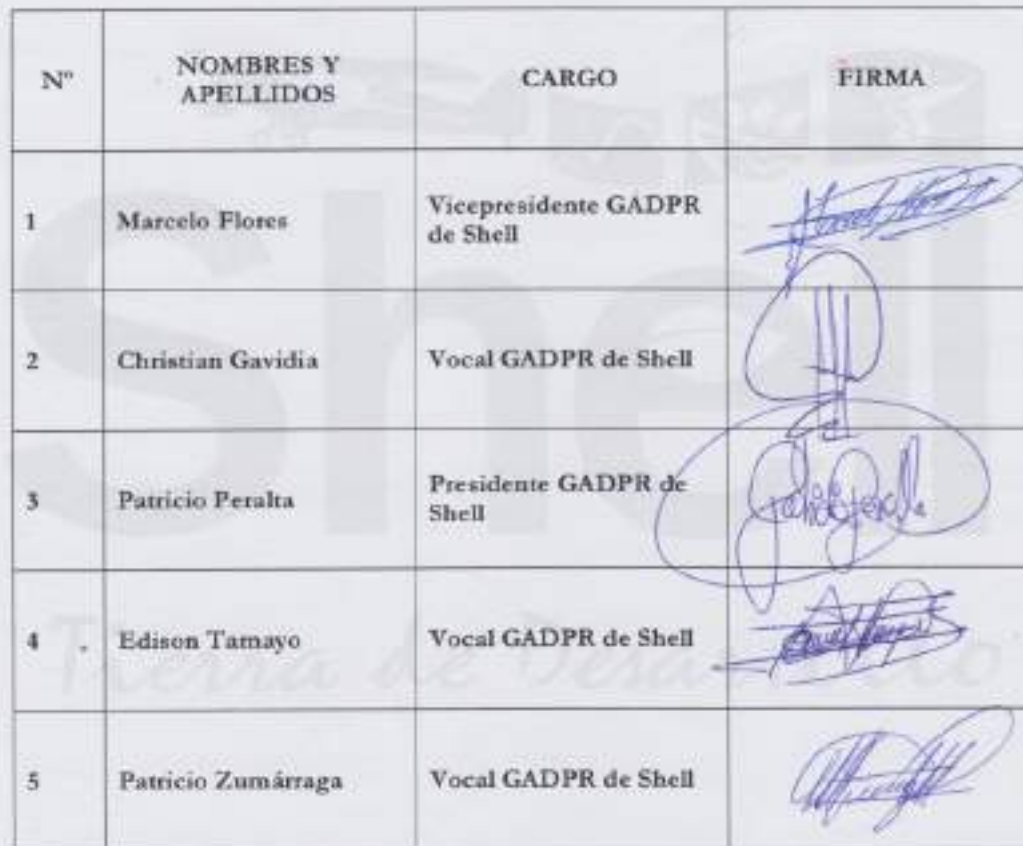 Nº
NOMBRES Y
APELLIDOS
CARGO
FIRMA
1
Marcelo Flores
Vicepresidente GADPR
de Shell
2
Christian Gavidia
Vocal GADPR de Shell
3
Patricio Peralta
Presidente GADPR de
Shell
4
Edison Tamayo
Vocal GADPR de Shell
5
Patricio Zumárraga
Vocal GADPR de Shell
Shell
Tierra de Desarrollo